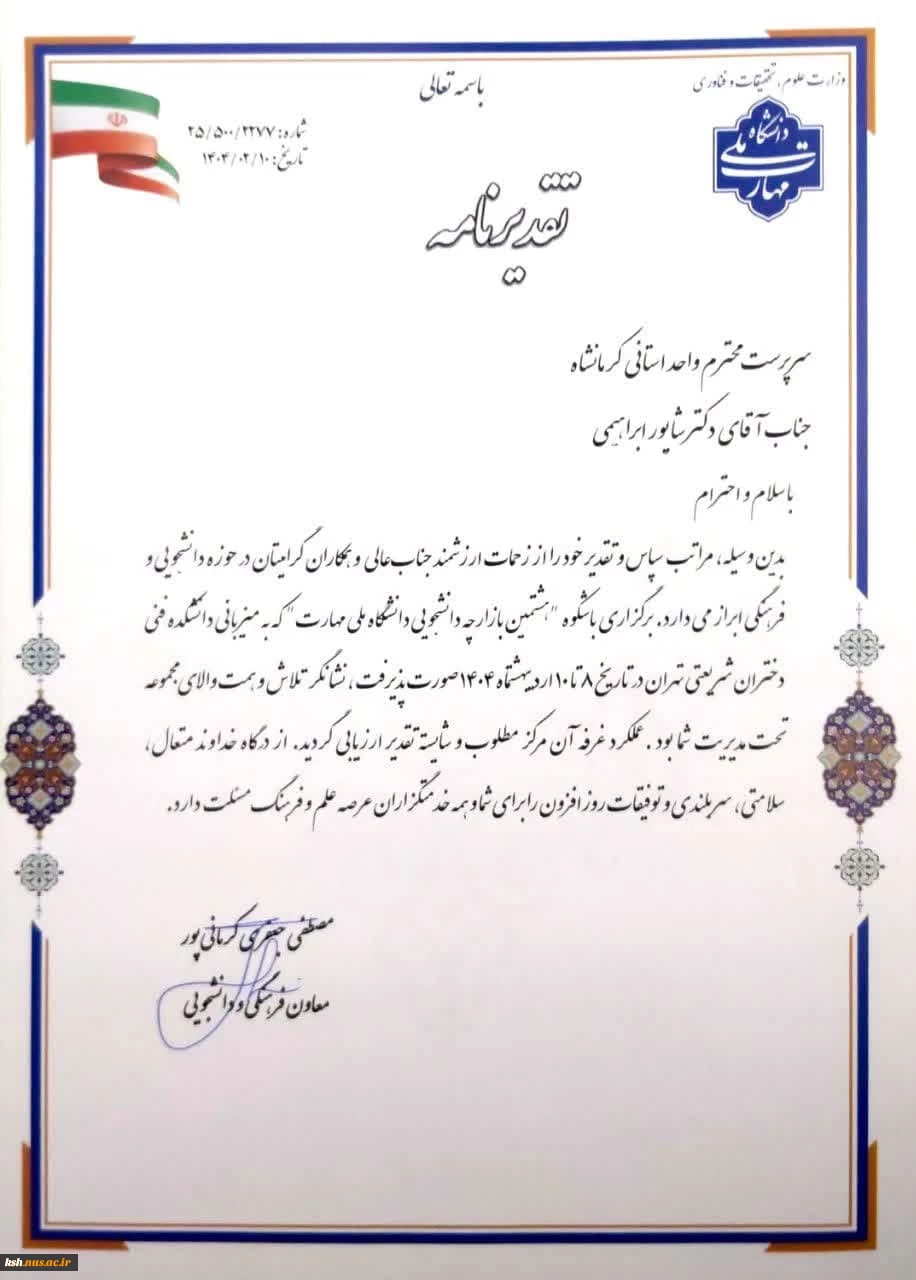 باسمه تعالی
وزارت علوم، تحقیقات و فناوری
دانشگاه
ملی
مهارت
شماره: ۲۵/۵۰۰/۲۲۷۷
تاریخ: ۱۴۰۴/۰۲/۱۰
تقدیرنامه
سرپرست محترم واحد استانی کرمانشاه
جناب آقای دکتر شاپور ابراهیمی
با سلام و احترام
بدین وسیله، مراتب سپاس و تقدیر خود را از زحمات ارزشمند جناب عالی و همکاران گرامیتان در حوزه دانشجویی و
فرهنگی ابراز می دارد. برگزاری باشکوه "هشتمین بازارچه دانشجویی دانشگاه ملی مهارت" که به میزبانی دانشکده فنی
دختران شریعتی تهران در تاریخ ۸ تا ۱۰ اردیبهشتماه ۱۴۰۴ صورت پذیرفت، نشانگر تلاش و همت والای مجموعه
تحت مدیریت شما بود. عملکرد غرفه آن مرکز مطلوب و شایسته تقدیر ارزیابی گردید. از درگاه خداوند متعال،
سلامتی، سربلندی و توفیقات روزافزون را برای شما و همه خدمتگزاران عرصه علم و فرهنگ مسئلت دارد.
مصطفی جعفری کرمانی پور
معاون فرهنگی و دانشجویی
ksh.nus.ac.ir